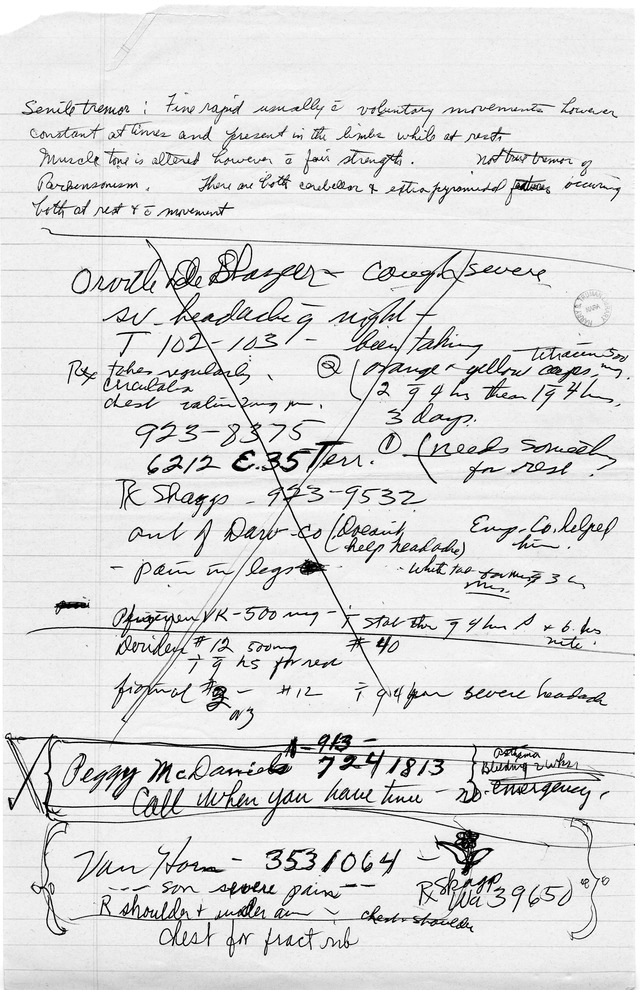 Senile tremor : Fine rapid usually c̄ voluntary movements however
constant at times and present in the limbs while at rest.
Muscle tone is altered however c̄ fair strength. Not true tremor of
Parkensonism. There are both cerebellar & extrapyramidal features occuring
both at rest & c̄ movement
Orville De Shazer - cough severe
sv. headache q night -
T 102-103 - been taking
Rx takes regularly
chest
② (orange & yellow caps.
2 q 4 hrs then 1 q 4 hrs,
3 days.
923-8375
6212 E. 35 Terr. ① (needs
for rest.
Rx Skaggs - 923-9532
out of Darv-Co (Doesn't
help headache)
Emp. Co. helped
him.
- pain in legs
VK - 500 mg -
stat then q 4 hrs
nite.
Doriden #12 500mg #40
q hs for rest
fiorinal #3 - #12 q 4 for severe headach
- 913 -
Peggy McDaniels 724 1813
Asthma
Bleeding 2 wks
Call when you have time - no emergency.
Van Horn - 353 1064 -
--- son severe pain --
Rx Skagg
Wa 39650
R shoulder + under arm - chest + shoulder
chest for fract rib